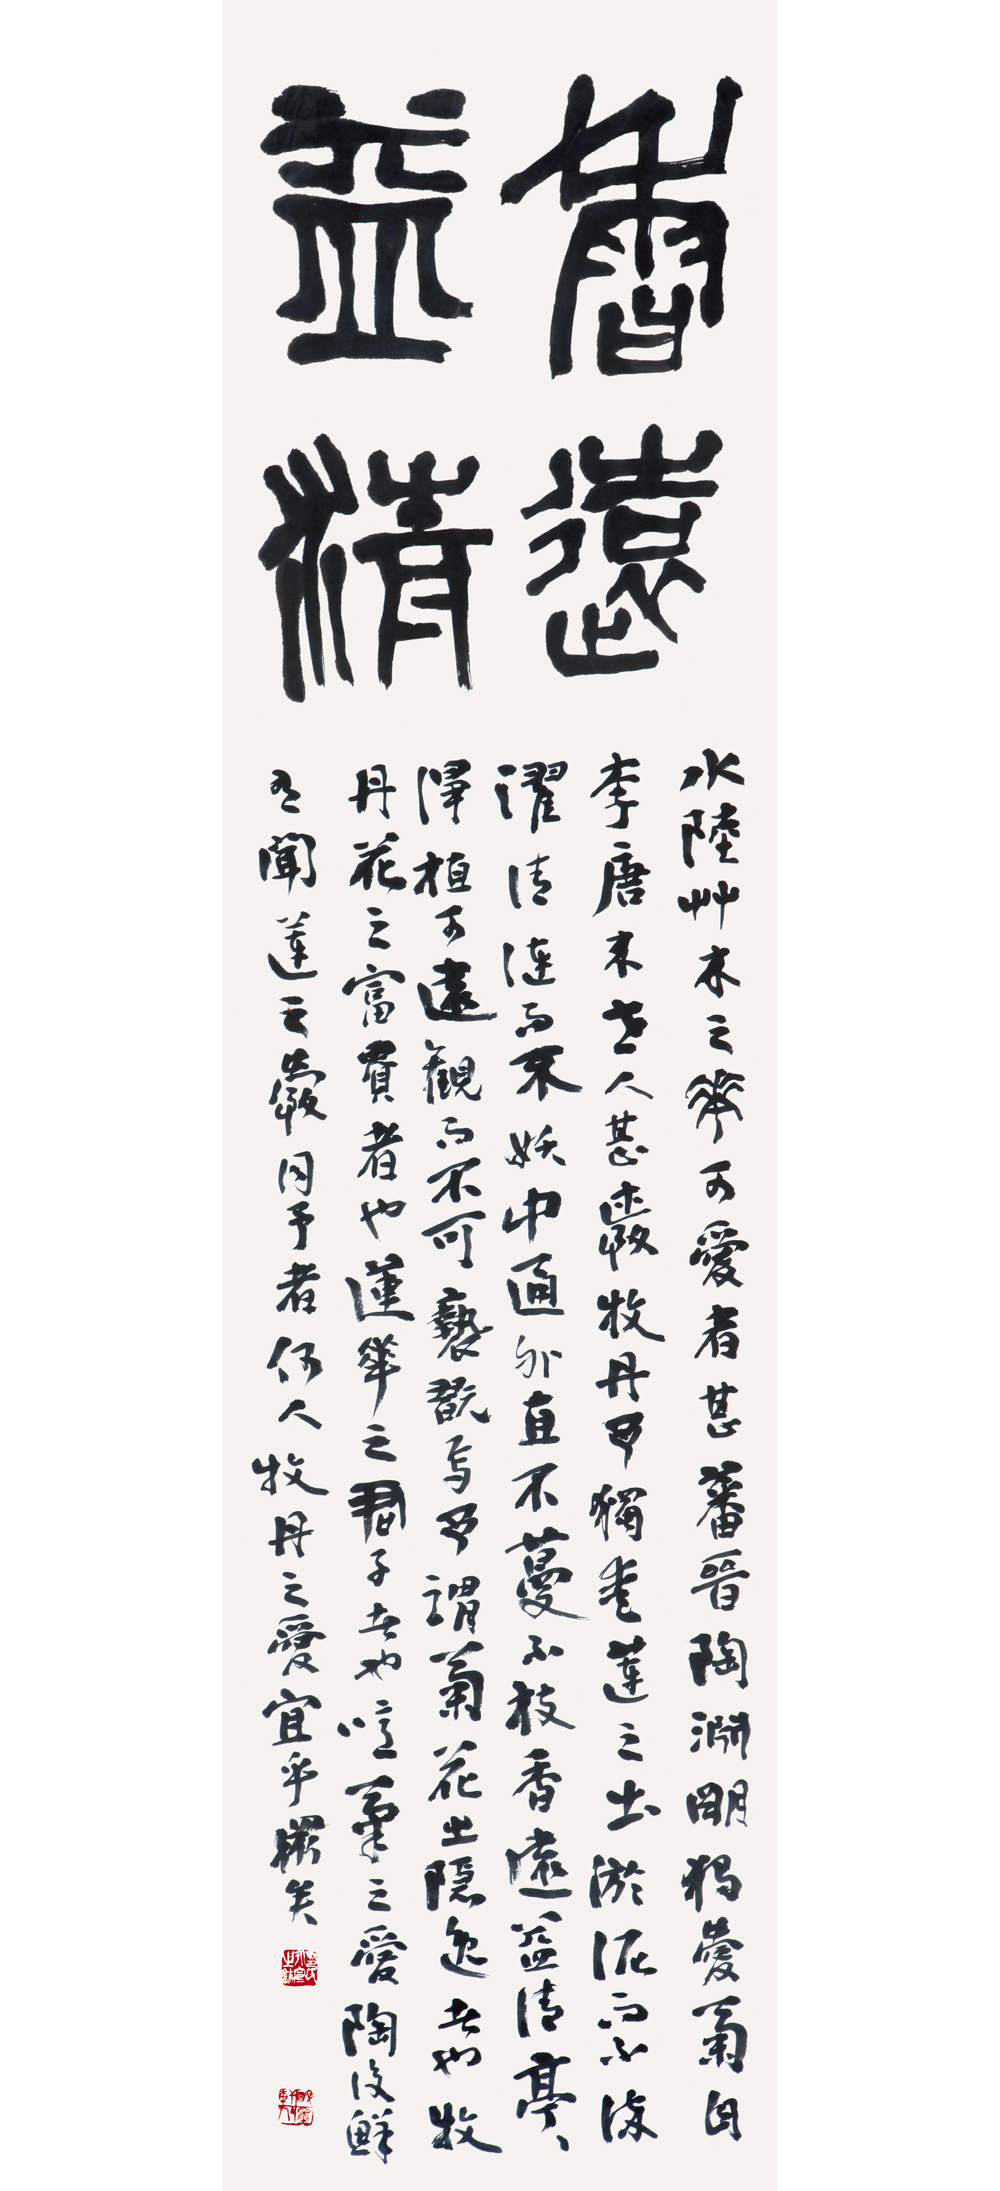 香遠
益清
水陸艸木之華可愛者甚蕃晉陶淵明獨愛菊自
李唐來世人甚愛牡丹予獨愛蓮之出淤泥而不染
濯清漣而不妖中通外直不蔓不枝香遠益清亭、
淨植可遠觀而不可褻翫焉予謂菊花之隱逸者也牡
丹花之富貴者也蓮華之君子者也噫菊之愛陶後鮮
有聞蓮之愛同予者何人牡丹之愛宜乎眾矣